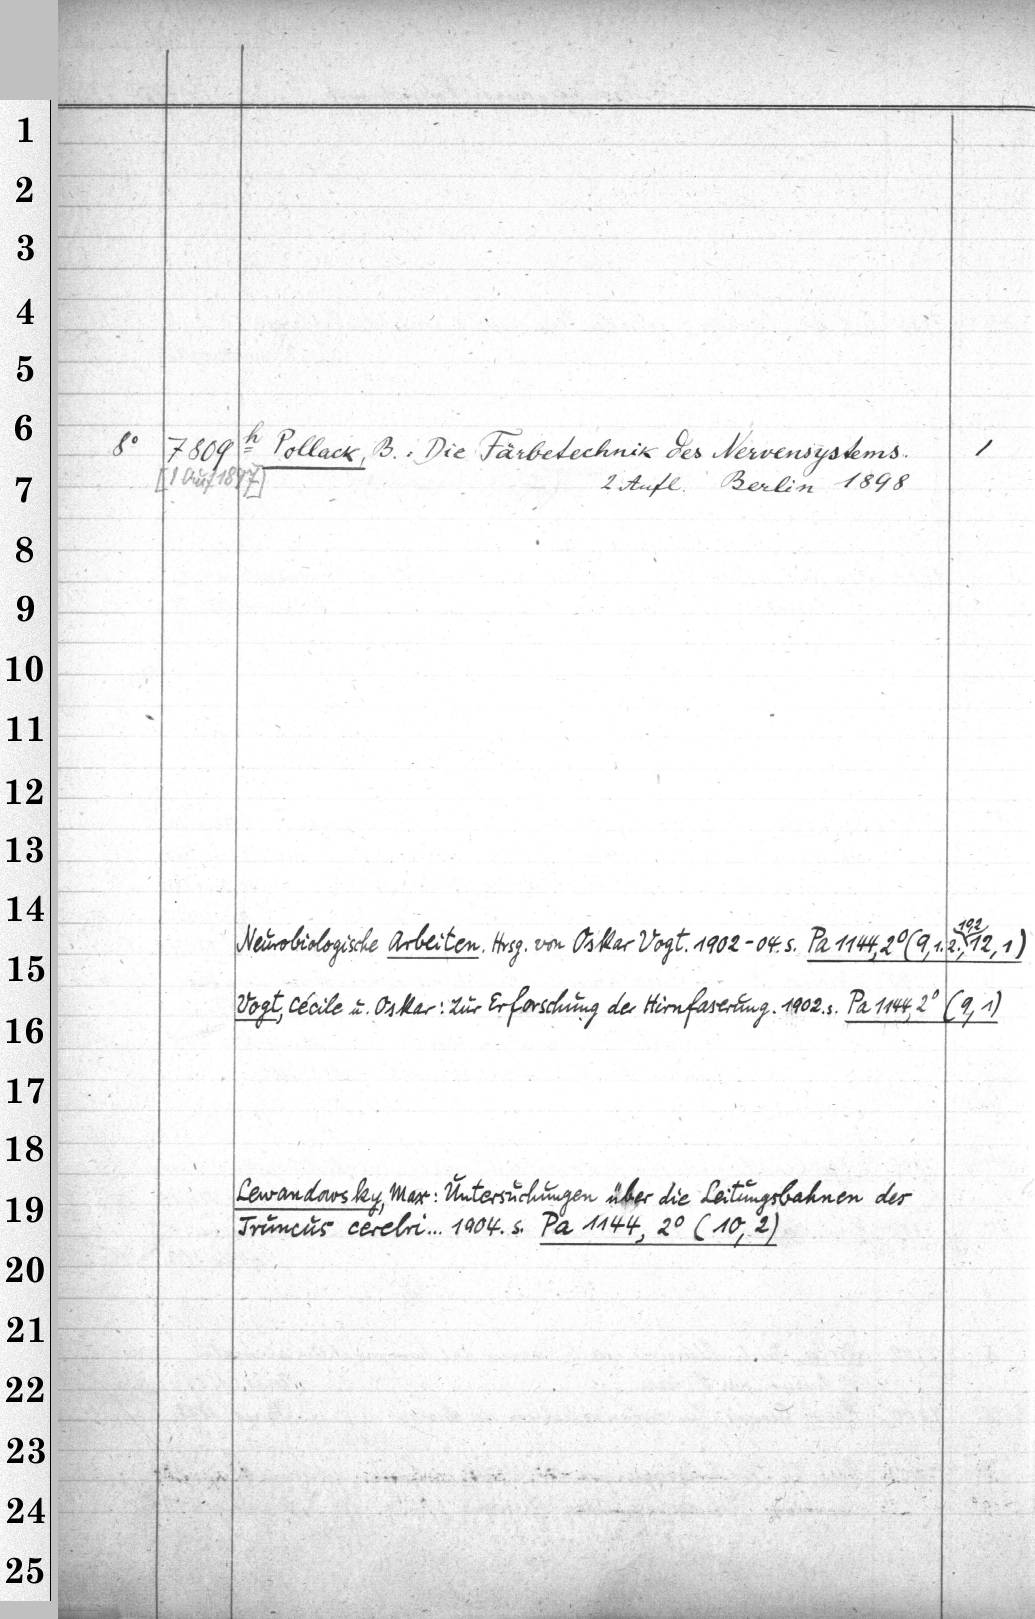 1
2
3
4
5
6
8° 7809 h Pollack, B.: Die Färbetechnik des Nervensystems. 1
7
[1 Aufl 1897] 2 Aufl. Berlin 1898
8
9
10
11
12
13
14
192
Neurobiologische Arbeiten. Hrsg. von Oskar Vogt. 1902-04. s. Pa 1144, 2° (9, 1. 2.; 12, 1)
15
Vogt, Cécile u. Oskar: Zur Erforschung der Hirnfaserung. 1902. s. Pa 1144, 2° (9, 1)
16
17
18
Lewandowsky, Max: Untersuchungen über die Leitungsbahnen des
19
Truncus cerebri... 1904. s. Pa 1144, 2° (10, 2)
20
21
22
23
24
25